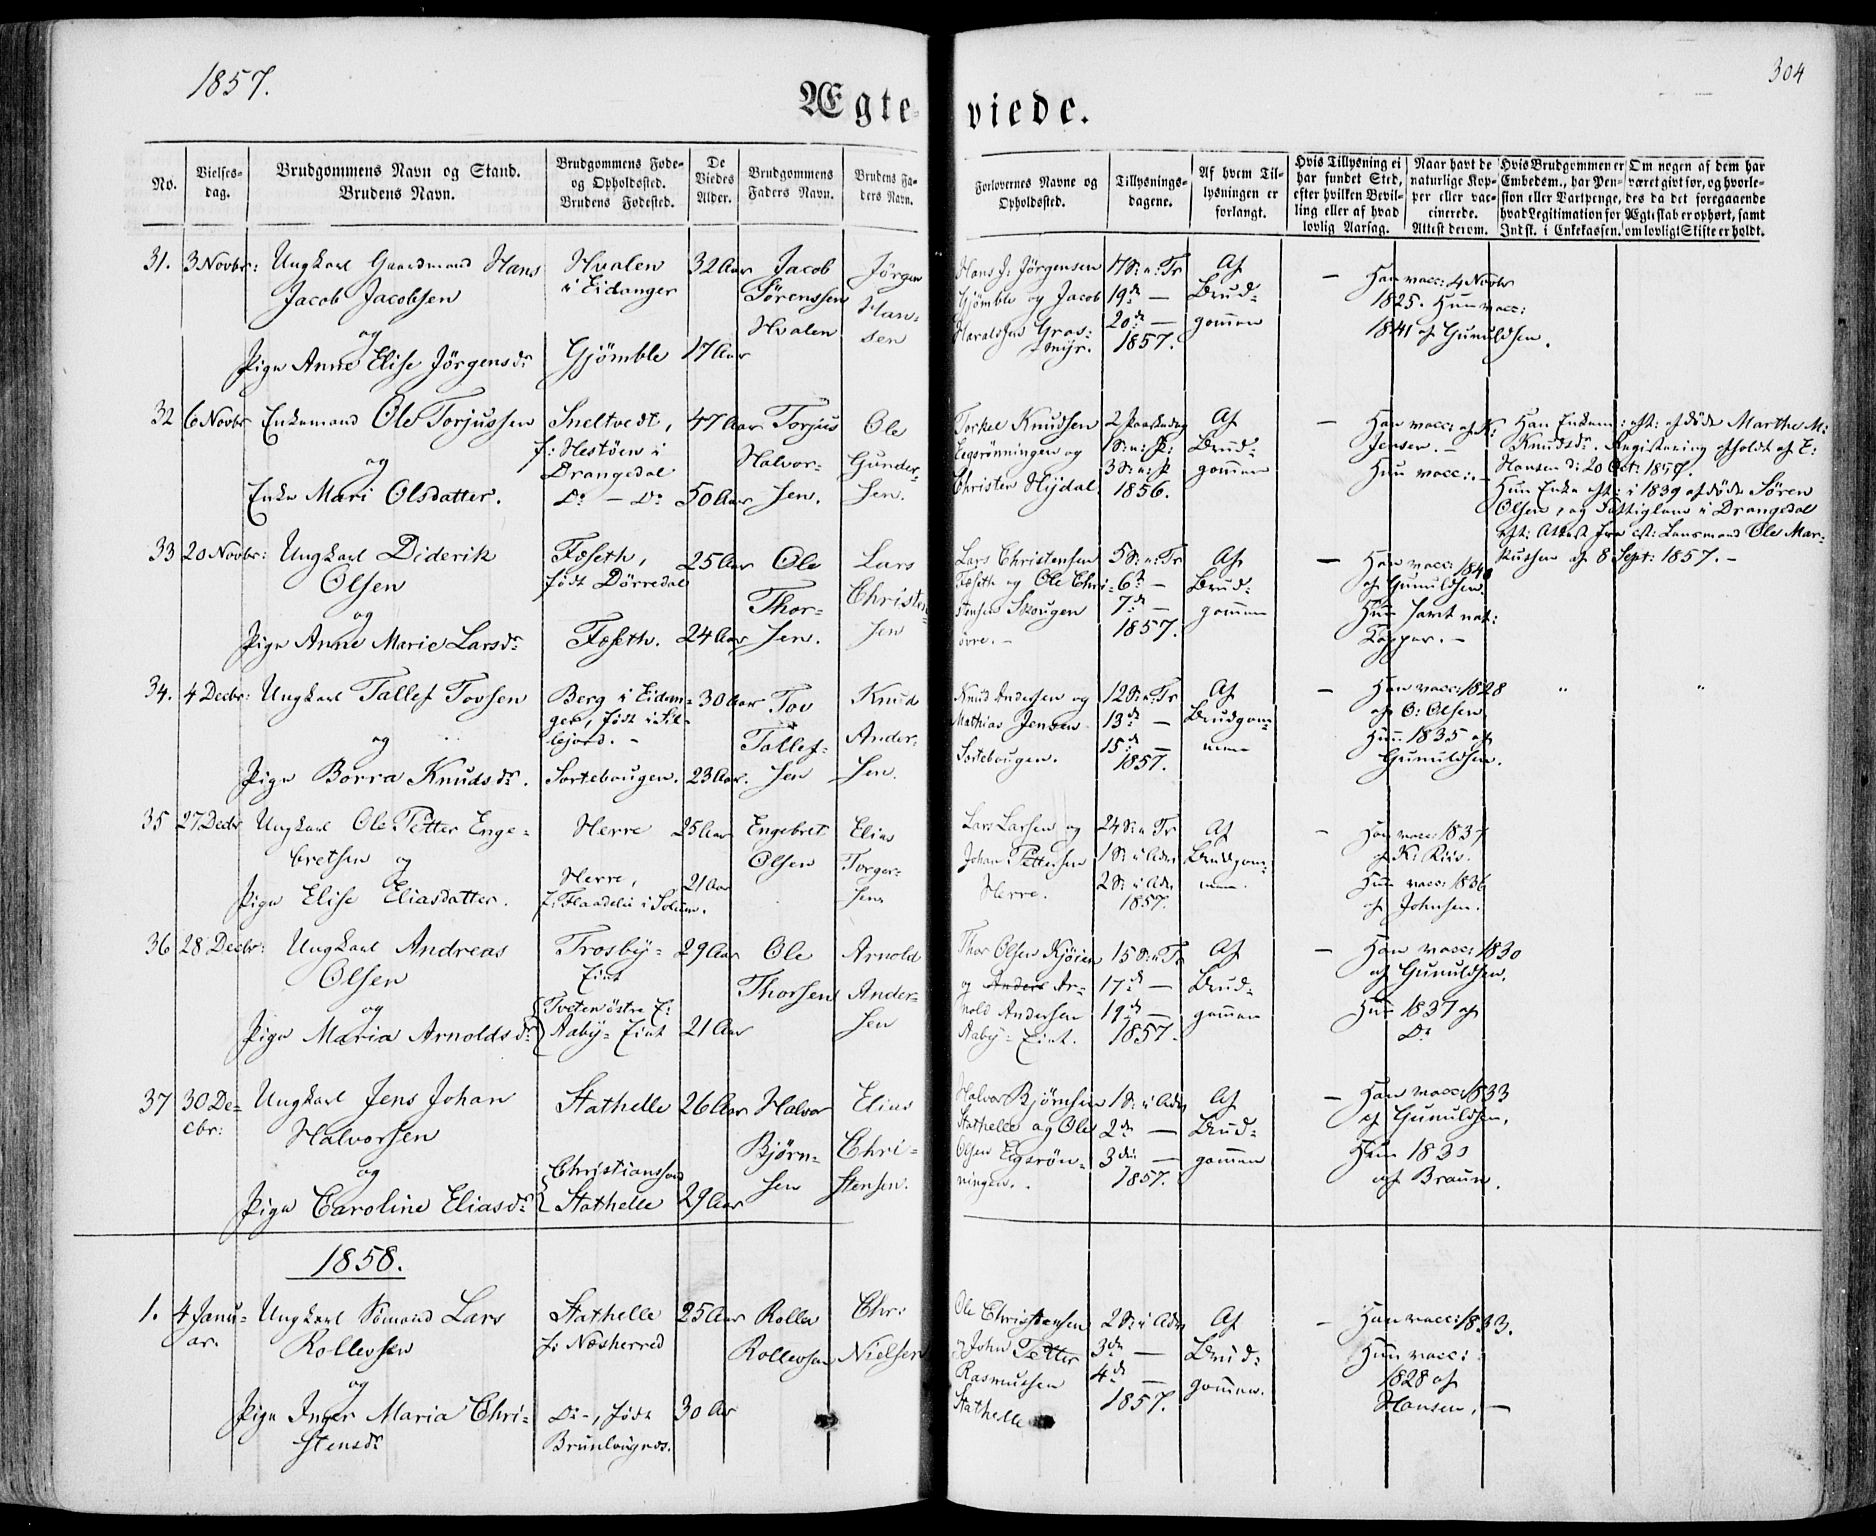 1857.
304
Ægteviede.
No.
Vielses-
dag.
Brudgommens Navn og Stand.
Brudens Navn.
Brudgommens Føde-
og Opholdssted.
Brudens Fødested.
De
Viedes
Alder.
Brudgommens
Faders Navn.
Brudens Fa-
ders Navn.
Forlovernes Navne og
Opholdssted.
Tillysnings-
dagene.
Af hvem Til-
lysningen er
forlangt.
Hvis Tillysning ei
har fundet Sted,
efter hvilken Bevil-
ling eller af hvad
lovlig Aarsag.
Naar havt de
naturlige Kop-
per eller vac-
cinerede.
Attest derom.
Hvis Brudgommen er
Embedsm., har Pen-
sion eller Vartpenge,
hvad Legitimation for
Indsk. i Enkekassen.
Om nogen af dem har
været gift før, og hvorle-
des da det foregaaende
Ægteskab er ophørt, samt
om lovligt Skifte er holdt.
31. 3 Novbr: Ungkarl Gaardmand Hans
Jacob Jacobsen
og
Pige Anne Elise Jørgensdr
Hvalen
i Eidanger
Gjömble
32 Aar
17 Aar
Jacob
Sørenssen
Hvalen
Jörgen
Han-
sen
Hans J. Jörgensen
Gjömble og Jacob
Haraldsen Gras-
myr.
17 S: e: Tr
19de —
20de —
1857.
Af
Brud-
gommen
—
Han vacc: 4 Novbr
1825. Hun vacc:
1841 af Gunuldsen.
32 6 Novbr Enkemand Ole Torjussen
og
Enke Mari Olsdatter.
Sneltvedt,
f: Hestöen i
Drangedal
Do — Do
47 Aar
50 Aar
Torjus
Halvor-
sen.
Ole
Gunder-
sen.
Torkel Knudsen
Eegsrönningen og
Christen Hydal.
2 Paaskedag
1 S: e: P:
3 S: e: P
1856.
Af
Brud-
gommen
—
Han vacc: af K:
Jensen. —
Hun vacc: —
Han Enkem: eft: afdöde Marthe M:
Knudsdr. Registrering afholdt af E.
Hansen d: 20 Oct: 1857.
Hun Enke eft: i 1839 afdöde Sören
Olsen, og Fattiglem i Drangedal
eft: Attest fra cst: Lensmand Ole Mar-
kussen af 8 Sept: 1857. —
33 20 Novbr: Ungkarl Diderik
Olsen
og
Pige Anne Marie Larsdr
Fæseth,
födt Dörredal
Fæseth.
25 Aar
24 Aar
Ole
Thor-
sen.
Lars
Christen-
sen
Lars Christensen
Fæseth og Ole Chri-
stensen Skougen
övre. —
5 S: e: Tr
6te —
7de —
1857.
Af
Brud-
gommen
—
Han vacc: 1840
af Gunuldsen.
Hun havt nat:
Kopper. —
34. 4 Decbr: Ungkarl Tallef Tovsen
og
Pige Borra Knudsdr.
Berg i Eidan-
ger, födt i Sil-
lejord. —
Sortebougen.
30 Aar
23 Aar.
Tov
Tallef-
sen
Knud
Ander-
sen.
Knud Andersen og
Mathias Jensen
Sortebougen.
12 S: e: Tr
13de —
15de —
1857.
Af
Brudgom-
men
—
Han vacc: 1828
af O: Olsen
Hun 1835 af
Gunuldsen.
"
"
35 27 Decbr Ungkarl Ole Petter Enge-
bretsen og
Pige Elise Eliasdatter.
Herre
Herre,
f: Flaadelii i Solum.
25 Aar
21 Aar
Engebret
Olsen
Elias
Torger-
sen
Lars Larsen og
Johan Pettersen
Herre.
24 S: e Tr
1 S: i Advt
2 S: i Adv.
1857.
Af
Brudgom-
men.
—
Han vacc: 1837
af K: Riis.
Hun vacc: 1836
af Johnsen.
36 28 Decbr: Ungkarl Andreas
Olsen
og
Pige Maria Arnoldsdr
Trosby-
Eint
Tveten östre E:
Aaby- Eint
29 Aar
21 Aar
Ole
Thorsen
Arnold
Ander-
sen
Thor Olsen Kjören
og Anders Ar-
nold Andersen
Aaby- Eint.
15 S: e Tr
17de —
19de —
1857.
Af
Brud-
gommen
—
Han vacc: 1830
af Gunuldsen.
Hun 1837 af
Do
37 30 De-
cbr:
Ungkarl Jens Johan
Halvorsen
og
Pige Caroline Eliasdr
Stathelle
Christianssand
Stathelle
26 Aar
29 Aar
Halvor
Björn-
sen
Elias
Chri-
stensen.
Halvor Björnsen
Stathelle og Ole
Olsen Eegsrön-
ningen.
1 S: i Advt
2den —
3die —
1857.
Af
Brud-
gommen
—
Han vacc: 1833
af Gunuldsen.
Hun 1830
af Braun.
1858.
1. 4 Janu-
ar.
Ungkarl Sömand Lars
Rollevsen
og
Pige Inger Maria Chri-
stensdr
Stathelle
f: Næsherred
Do —, födt
Brunlaugnæs.
25 Aar
30 Aar
Rollev
Rollevsen
Chr:
Nielsen
Ole Christensen
og John Petter
Rasmussen
Stathelle
2 S: i Advt
3de —
4de —
1857.
Af
Brud-
gommen.
—
Han vacc: 1833.
Hun vacc:
1828 af
Hansen. —